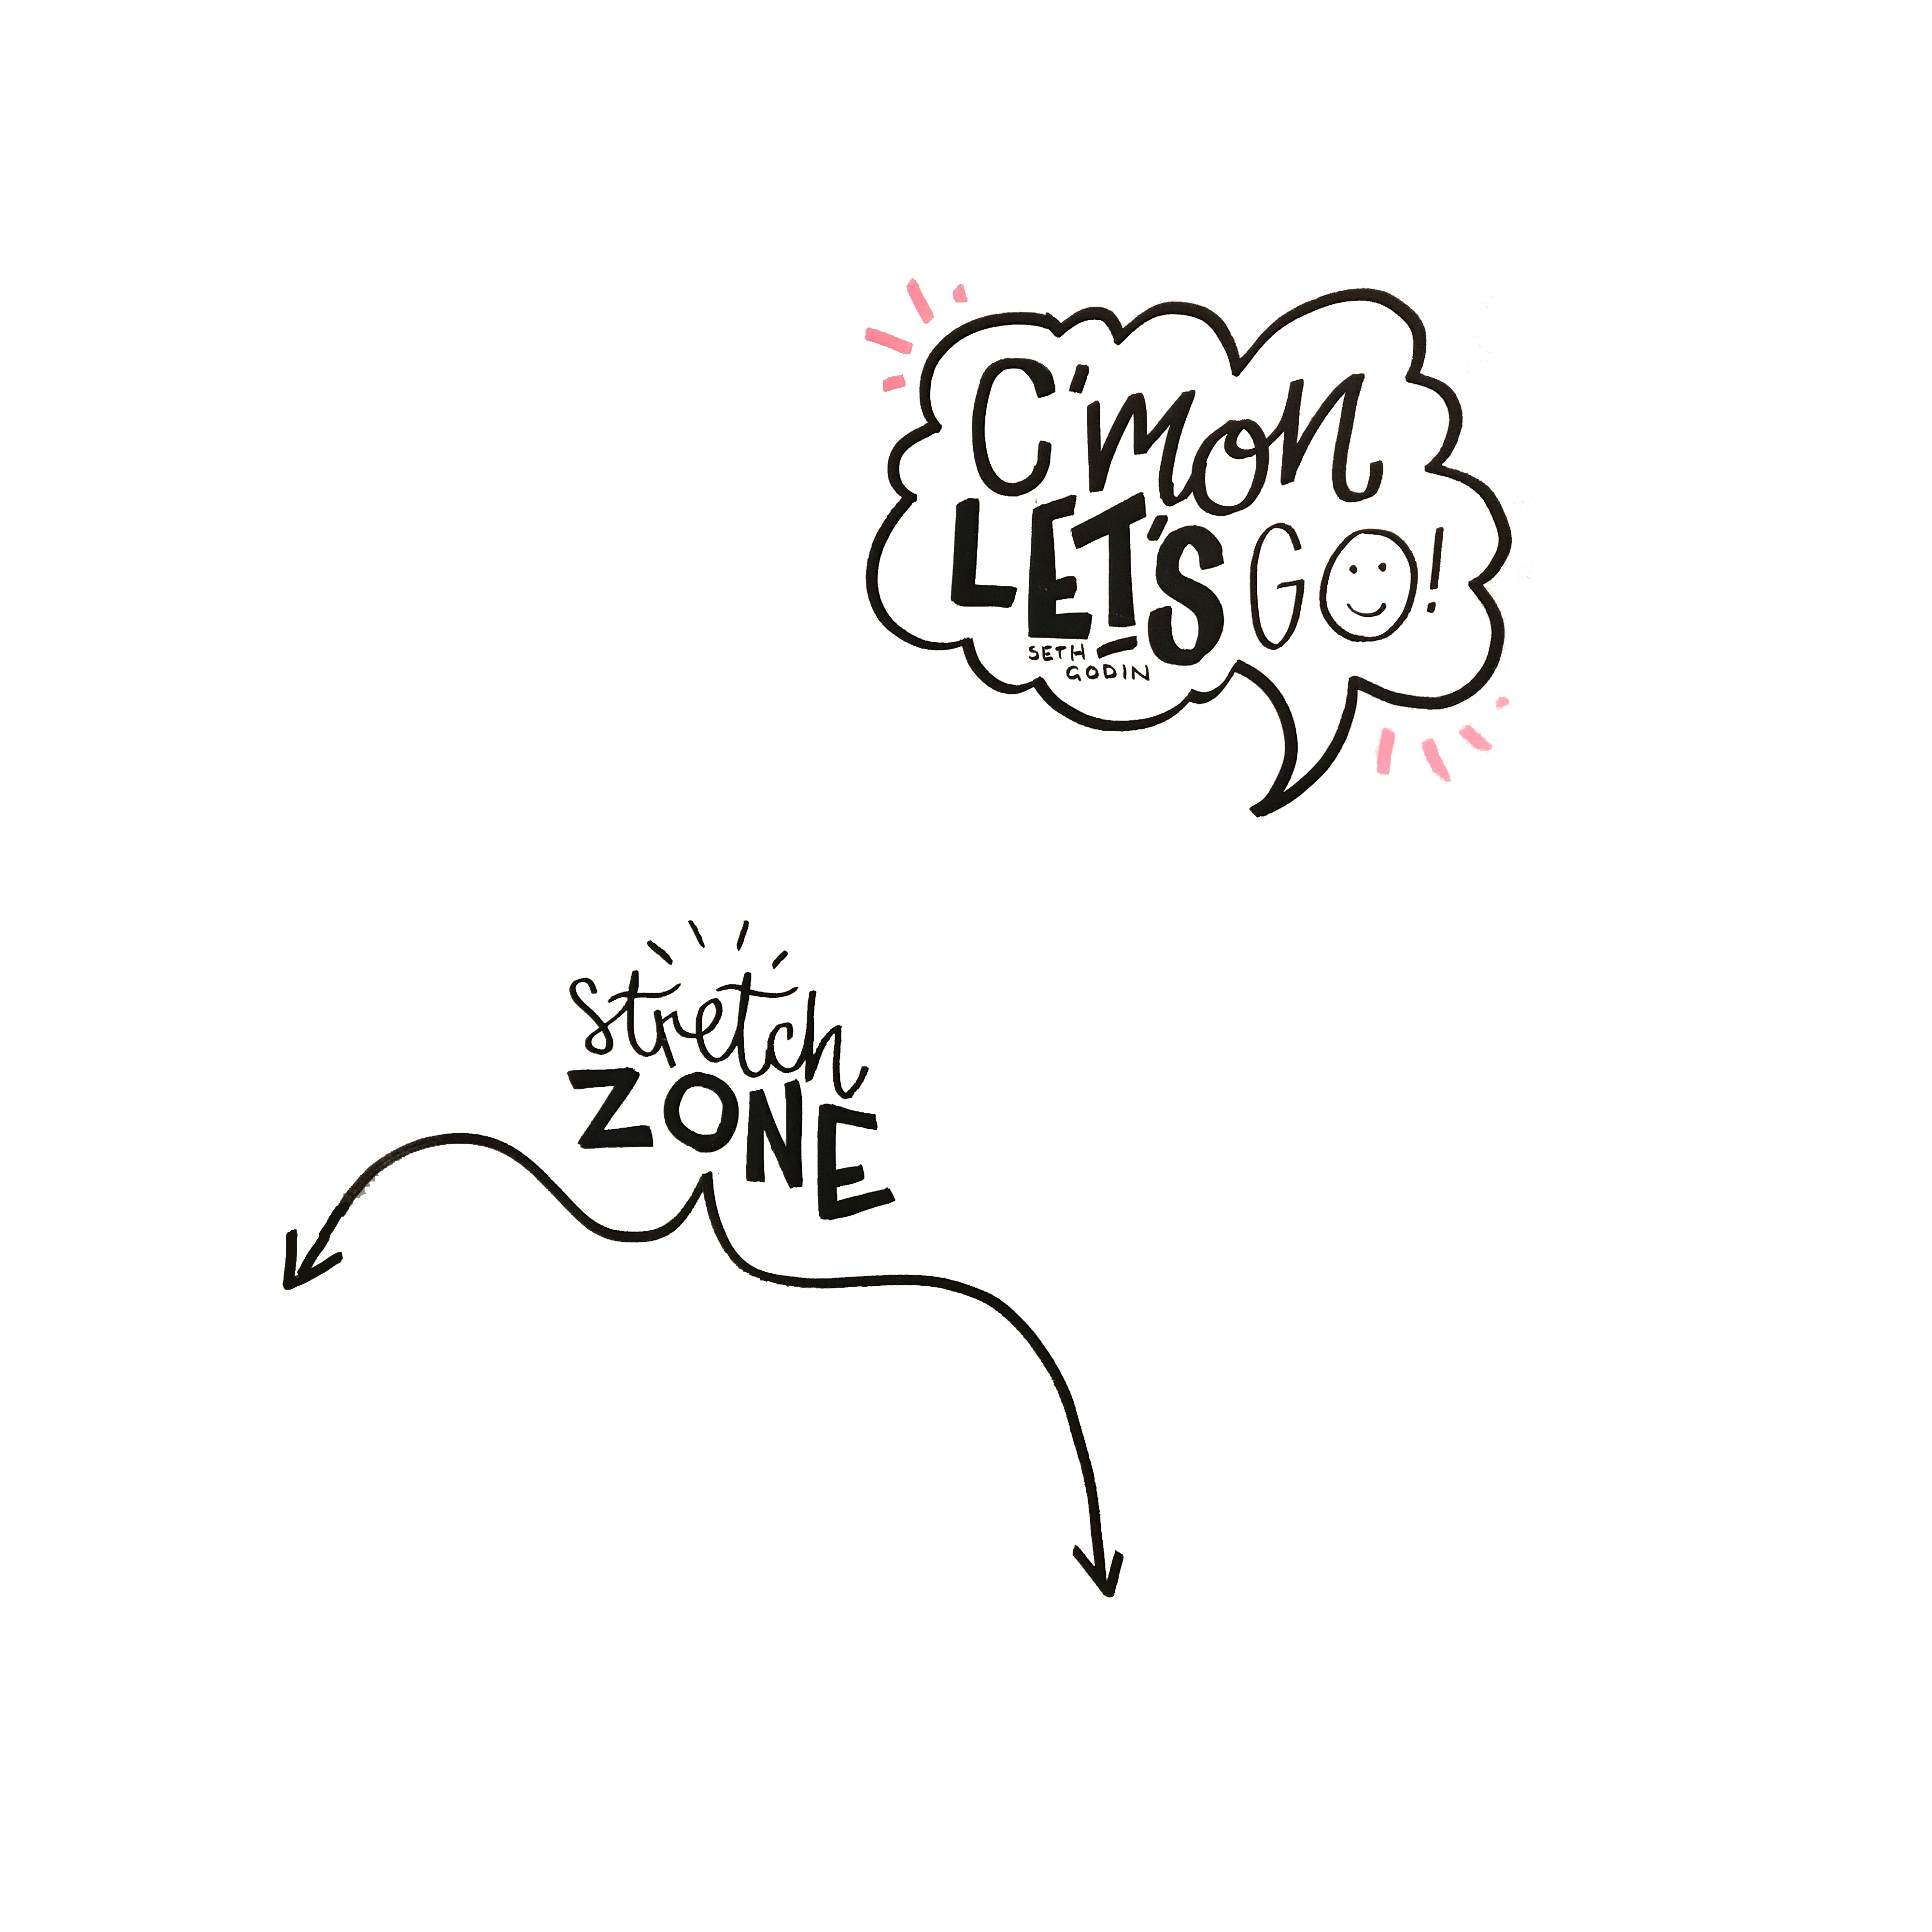 C'mon
LET'S GO!
SETH
GODIN
Stretch
ZONE